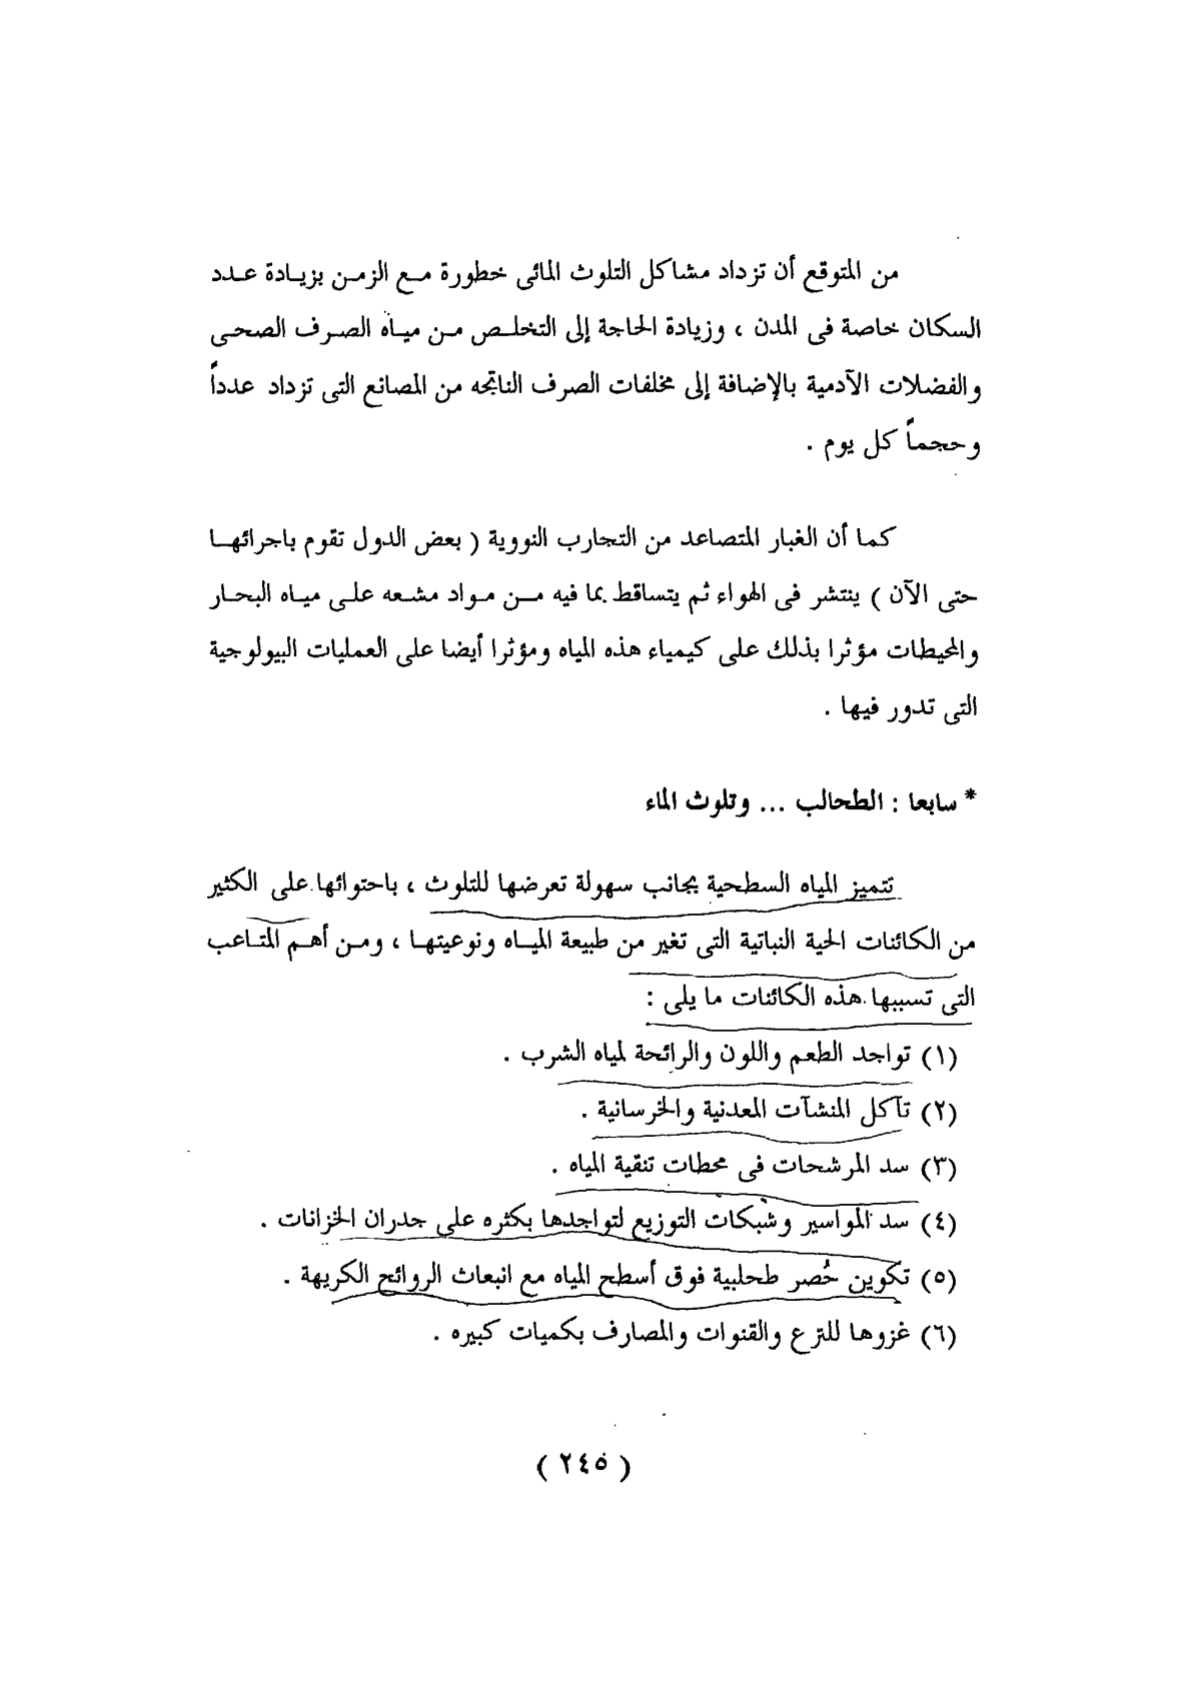 من المتوقع أن تزداد مشاكل التلوث المائى خطورة مع الزمن بزيادة عدد
السكان خاصة فى المدن ، وزيادة الحاجة إلى التخلص من مياه الصرف الصحى
والفضلات الآدمية بالإضافة إلى مخلفات الصرف الناتجه من المصانع التى تزداد عدداً
وحجماً كل يوم .
كما أن الغبار المتصاعد من التجارب النووية ( بعض الدول تقوم باجرائها
حتى الآن ) ينتشر فى الهواء ثم يتساقط بما فيه من مواد مشعه على مياه البحار
والمحيطات مؤثرا بذلك على كيمياء هذه المياه ومؤثرا أيضا على العمليات البيولوجية
التى تدور فيها .
* سابعا : الطحالب ... وتلوث الماء
تتميز المياه السطحية بجانب سهولة تعرضها للتلوث ، باحتوائها على الكثير
من الكائنات الحية النباتية التى تغير من طبيعة المياه ونوعيتها ، ومن أهم المتاعب
التى تسببها هذه الكائنات ما يلى :
(١) تواجد الطعم واللون والرائحة لمياه الشرب .
(٢) تآكل المنشآت المعدنية والخرسانية .
(٣) سد المرشحات فى محطات تنقية المياه .
(٤) سد المواسير وشبكات التوزيع لتواجدها بكثره على جدران الخزانات .
(٥) تكوين حُصر طحلبية فوق أسطح المياه مع انبعاث الروائح الكريهة .
(٦) غزوها للترع والقنوات والمصارف بكميات كبيره .
( ٢٤٥ )